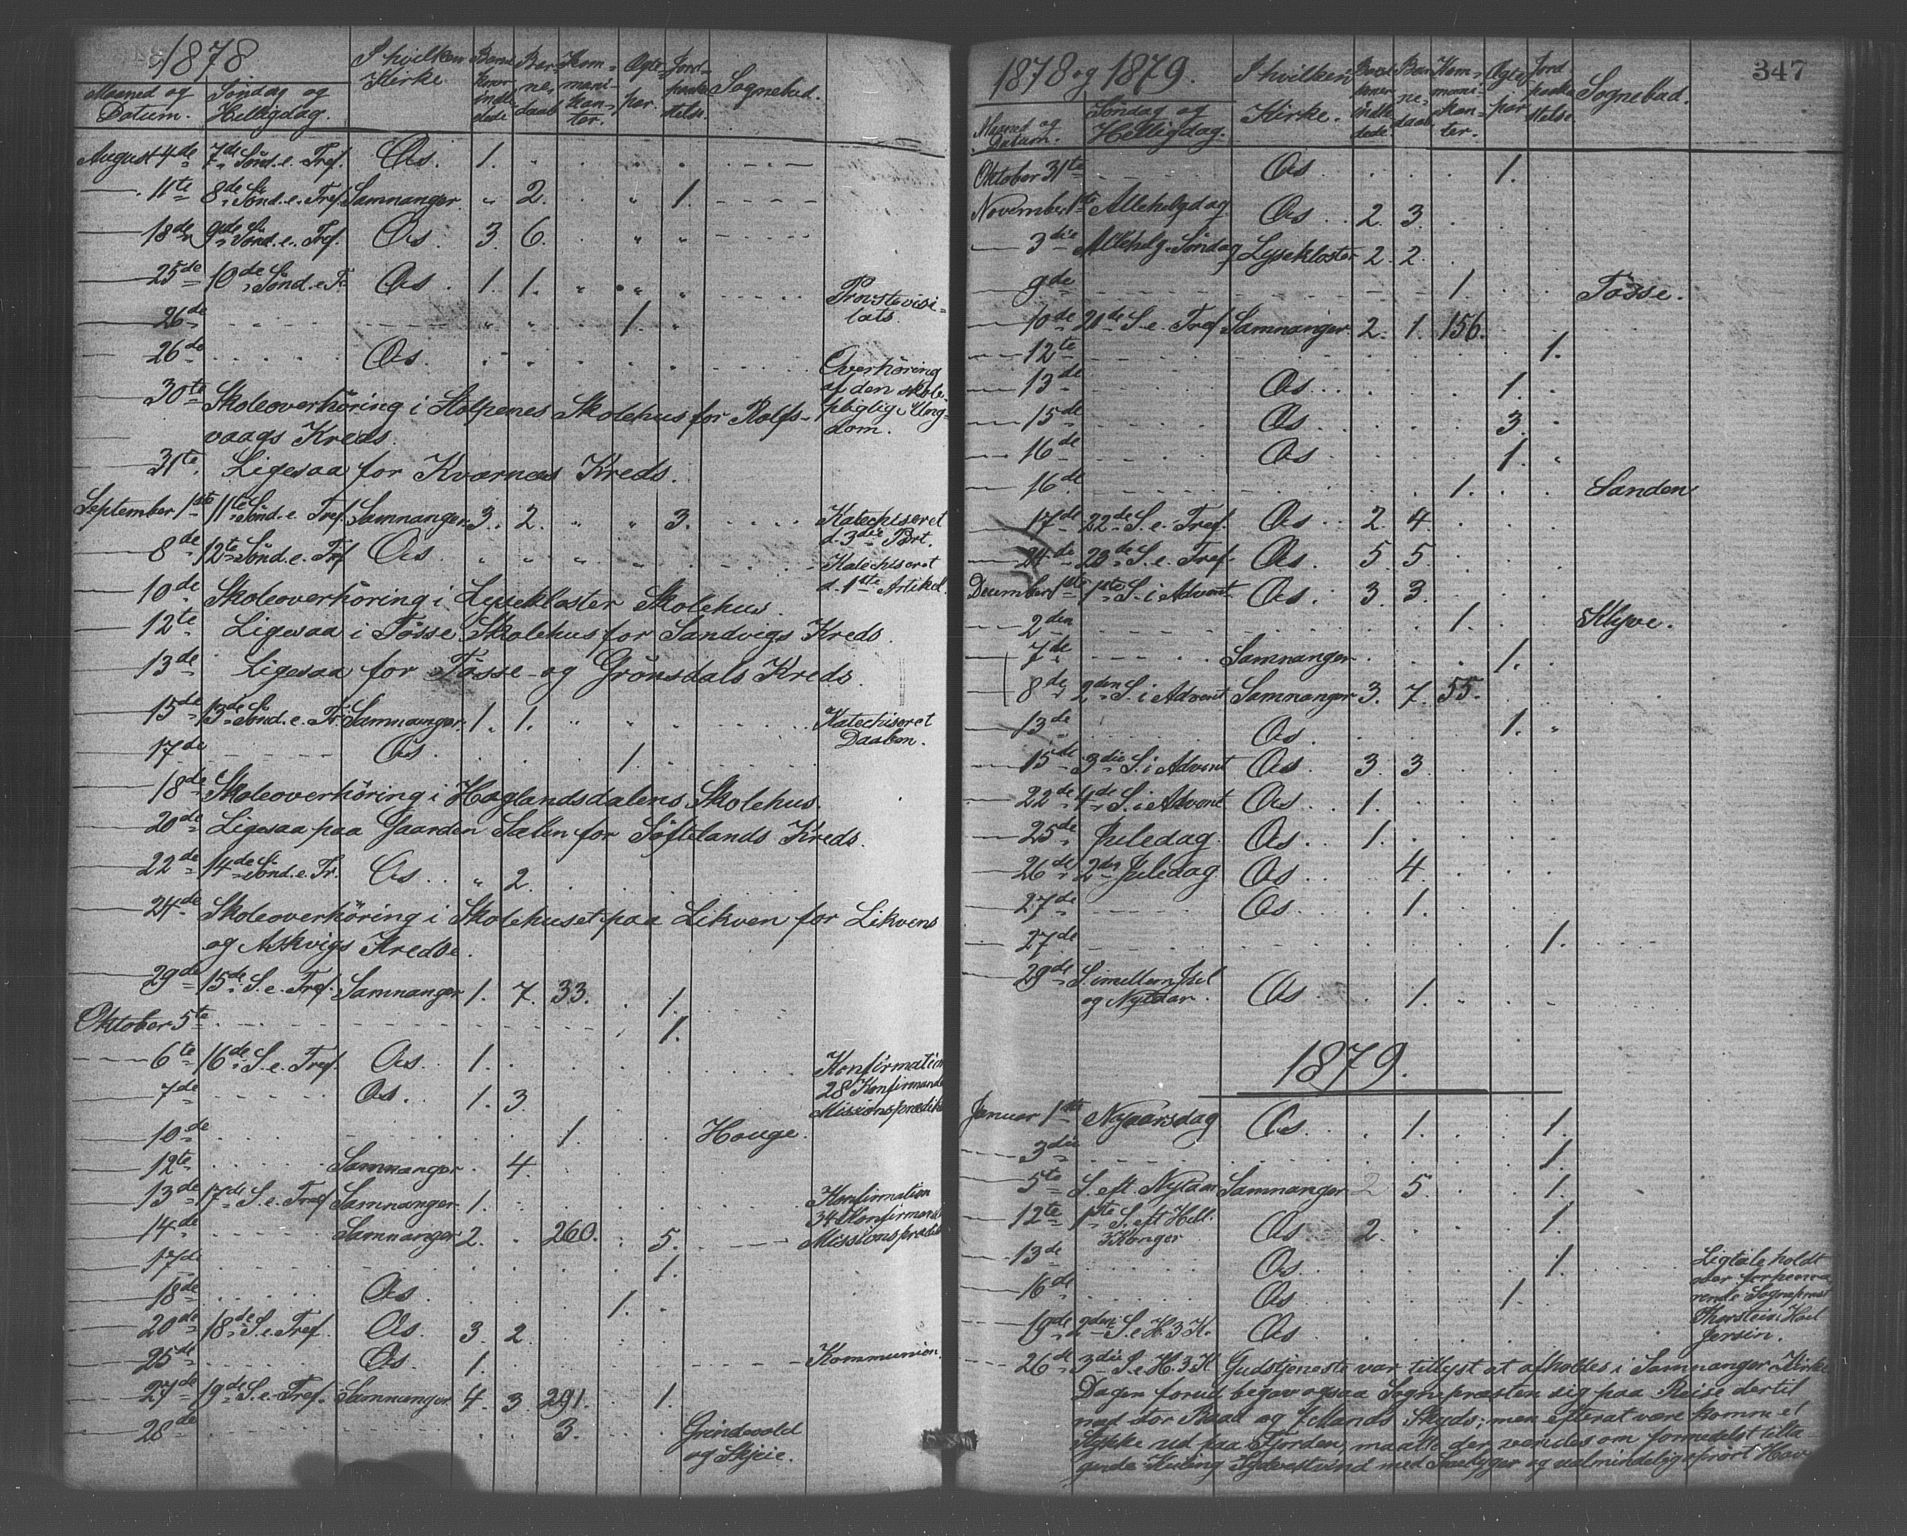 1878
Maaned og Datum. Søndag og Helligdag. I hvilken Kirke Barne- daab Kom- muni- kan- ter. Ægte- par. Jord- paaka- stelse Sognebud.
August 4de 7de Sønd. e. Tref. Os. 1.
11te 8de Sønd. e. Tref. Samnanger. " 2. " 1.
18de 9de Sønd. e. Tref. Os. 3. 6. " "
25de 10de Sønd. e. Tr. Os. 1. 1. " " " Provstevisi-
tats.
26de " " " 1. "
26de Os. Overhøring
af den skole-
pligtige Ung-
dom.
30te Skoleoverhøring i Holpenes Skolehus for Rolfs-
vaags Kreds.
31te. Ligesaa for Kvarnæs Kreds.
September 1ste 11te Sønd. e. Tref. Samnanger. 3. 2. " " 3. Katechiseret
d. 3die Part.
8de 12te Sønd. e. Tref Os. Katechiseret
d. 1ste Artikel.
10de Skoleoverhøring i Lysekloster Skolehus.
12te Ligesaa i Tøsse Skolehus for Sandvigs Kreds.
13de Ligesaa for Tøsse- og Grønsdals Kreds.
15de 13de Sønd. e. Tr. Samnanger. 1. 1. " " Katechiseret
Daaben.
17de Os. 1.
18de Skoleoverhøring i Haglandsdalens Skolehus.
20de Ligesaa paa Gaarden Sælen for Søftelands Kreds.
22de 14de Sønd. e. Tr. Os. " 2.
24de Skoleoverhøring i Skolehuset paa Likven for Likvens
og Askvigs Kredse.
29de 15de S. e. Tref. Samnanger 1. 7. 33. 1.
Oktober 5te 1.
6te 16de S. e. Tref. Os. 1. Konfirmation
28 Konfirmande
7de Os. 1. 3. Missionsprædik
10de 1. Hauge.
12te Samnanger. 4.
13de 17de S. e. Tref Samnanger. 1. Konfirmation
34 Konfirmand
14de Samnanger 2. 260. 5. Missionsprædik
17de 1.
18de Os. 1.
20de 18de S. e. Tref. Os. 3. 2.
25de Os. 1. Kommunion.
27de 19de S. e. Tref. Samnanger 4. 3. 291. 1.
28de 3. Grindevold
og Skjeie.
1878 og 1879. 347
Maaned og Datum. Søndag og Helligdag. I hvilken Kirke. Kom- muni- kan- ter. Ægte- par Jord paaka- stelse Sognebud.
Oktober 31te Os 1.
November 1ste Allehelgdag Os 2. 3.
3die Allehelg. Søndag Lysekloster 2. 2.
9de 1. Tøsse.
10de 21de S. e. Tref. Samnanger. 2. 1. 156.
12te 1.
13de Os 1.
15de Os 3.
16de Os 1.
16de 1. Sanden
17de 22de S. e. Tref. Os 2. 4.
24de 23de S. e. Tref. Os. 5. 5.
December 1ste 1ste S. i Advent. Os. 3. 3.
2den 1. Klyve.
7de Samnanger 1.
8de 2den S. i Advent Samnanger 3. 7. 55.
13de Os. 1.
15de 3die S. i Advent Os. 3. 3.
22de 4de S. i Advent Os. 1.
25de Juledag. Os. 1.
26de 2den Juledag Os. 4.
27de Os. 1.
27de 1.
29de S. imellem Jul
og Nytaar. Os 1.
1879.
Januar 1ste Nytaarsdag Os. 1. 1.
3die 1.
5te S. eft Nytaar Samnanger 2 5. 1.
12te 1ste S. eft Hell.
3 Konger Os 2. 1.
13de Os. 1. Ligtale holdt
over forhenvæ
rende Sogneprest
Thorstein
16de Os 1.
19de 2den S. e. H. 3 K. Os.
26de 3die S. e. H. 3 K Gudstjeneste var tillyst at afholdes i Samnanger Kirke
Dagen forud begav ogsaa Sognepræsten sig paa Reise dertil
med stor Baad og 7 Mands Skyds; men efterat være komm et
Stykke ud paa Fjorden, maatte der vendes om formedelst tilta-
gende Kuling Sydvestvind med Snebyger og ualmindelig oprørt Hav